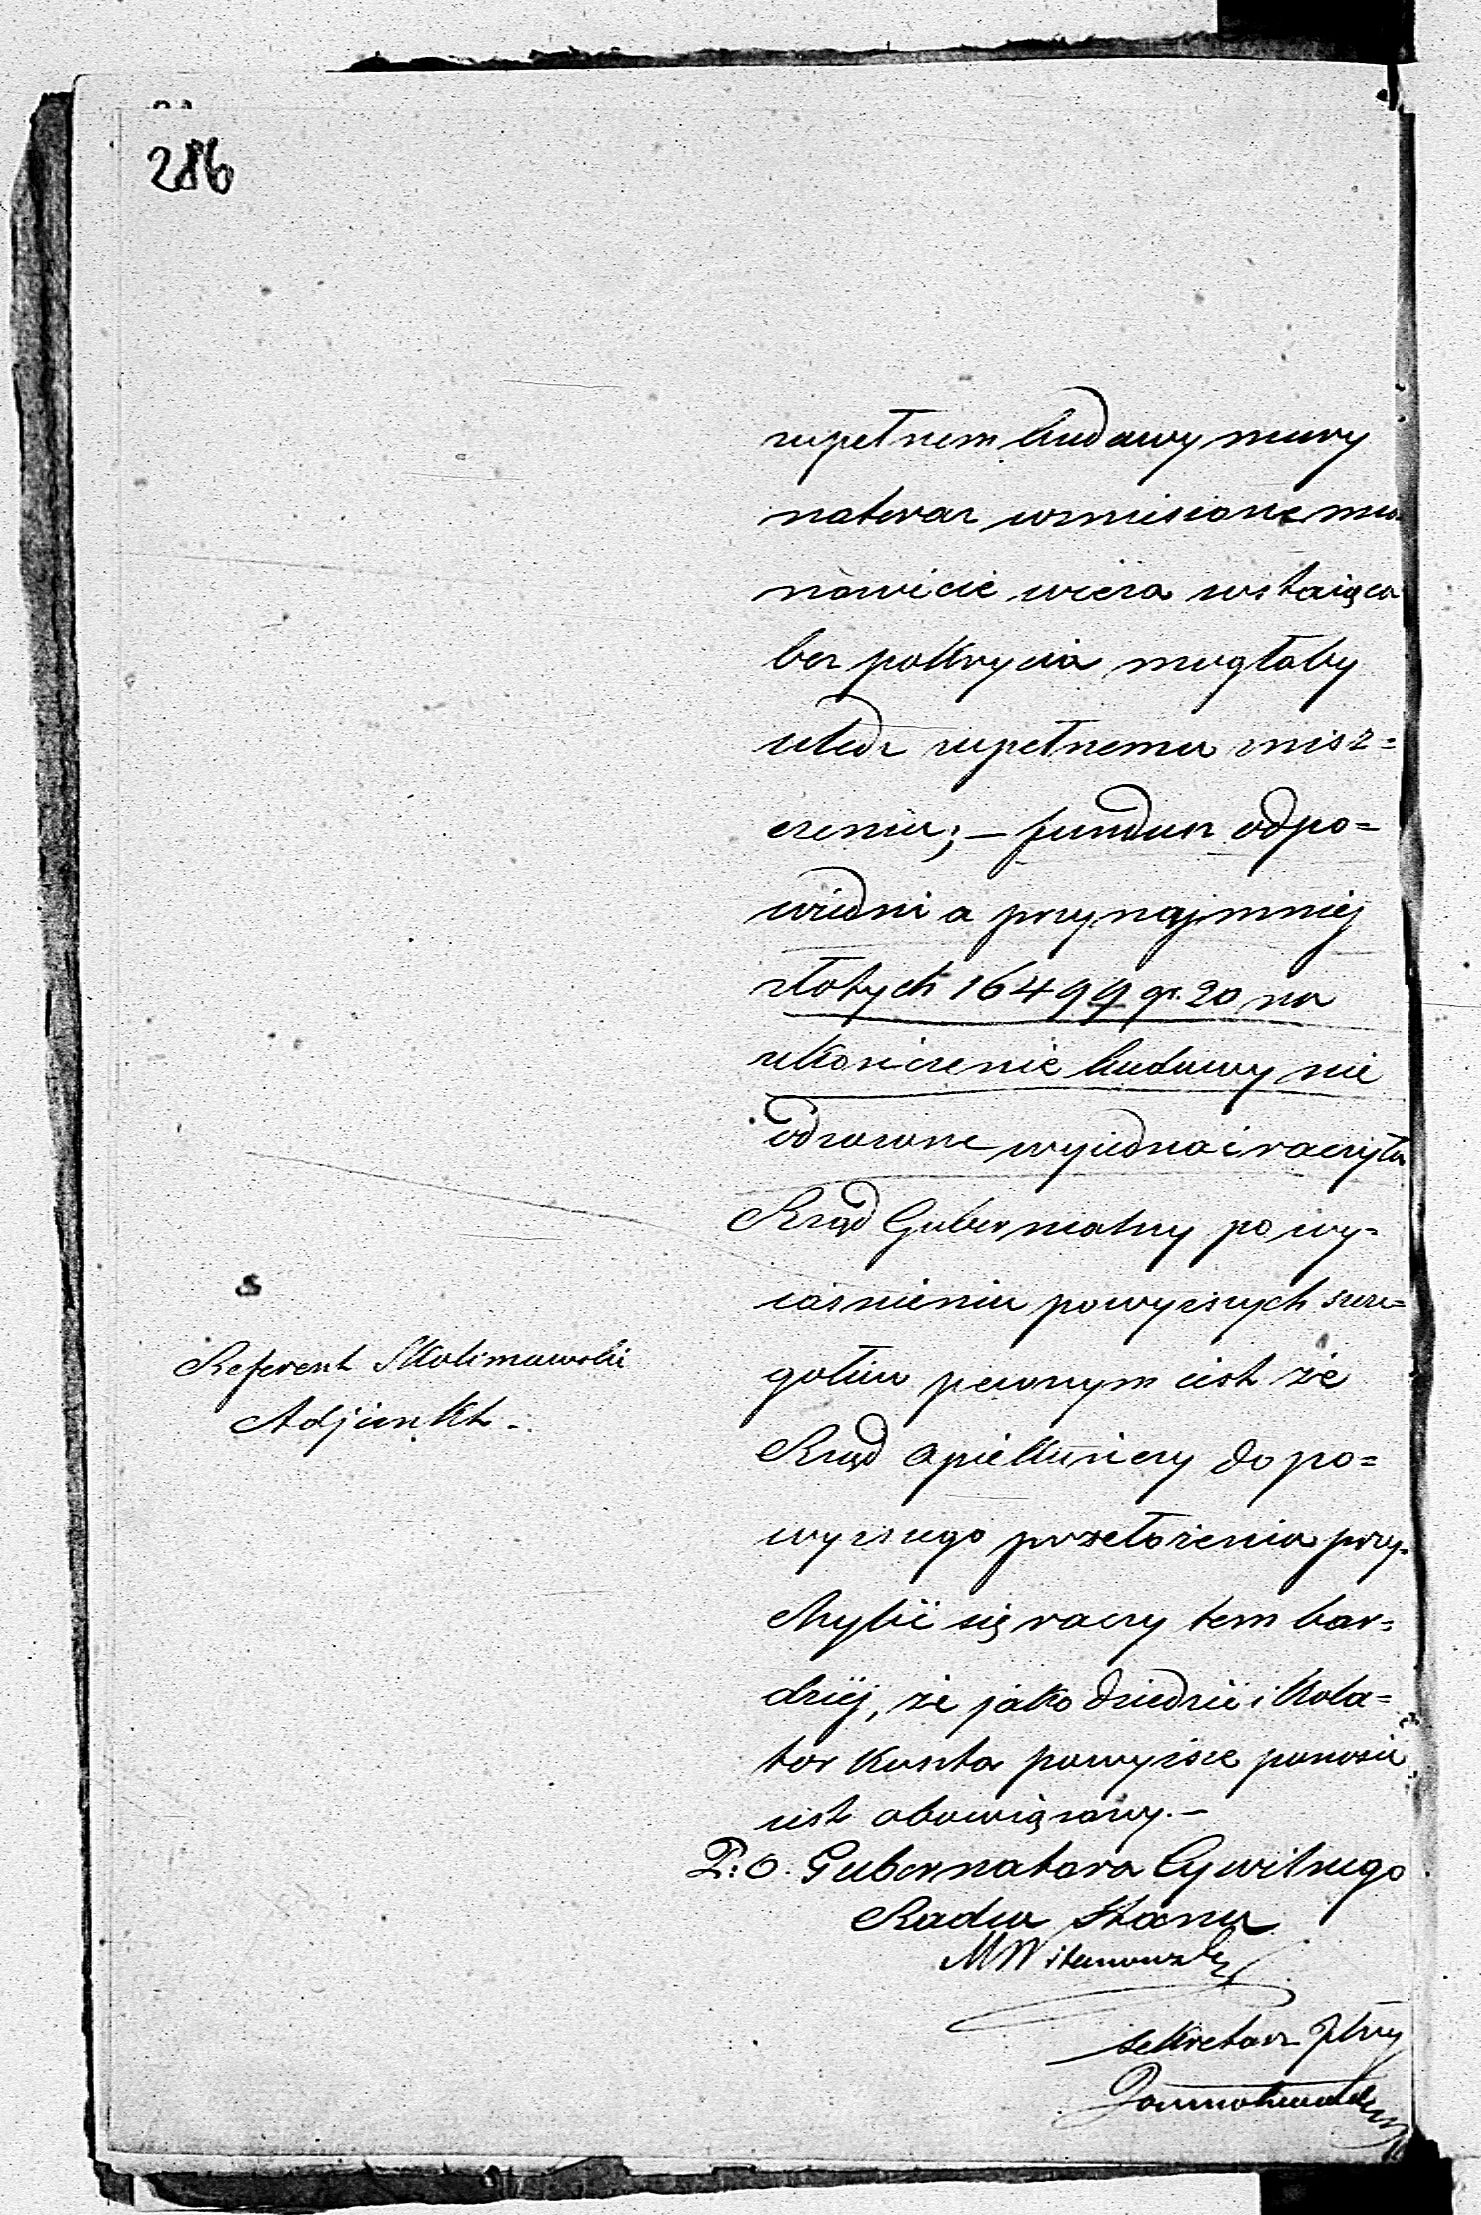 286
zupełnem budowy mury
nateraz wzniesione mia
nowicie wieża wstaiąca
bez pokrycia mogłaby
uledz zupełnemu znisz=
czeniu; — fundusz odpo=
wiedni a przynajmniej
złotych 16499 gr. 20 na
ukończenie budowy nie
odzowne wyiedna i raczyła
Rząd Gubernialny po wy=
iaśnieniu powyższych szcze=
gołów pewnym iest że
Rząd opiekuńczy do po=
wyższego przełożenia przy=
chylić się raczy tem bar=
dziéj, że jako dziedzic i Kola=
tor koszta powyższe ponosić
iest obowiązany. —
Referent Skolimowski
Adjunkt -
P: O. Gubernatora Cywilnego
Radca Stanu
M Witanowski
Sekretarz Jlny